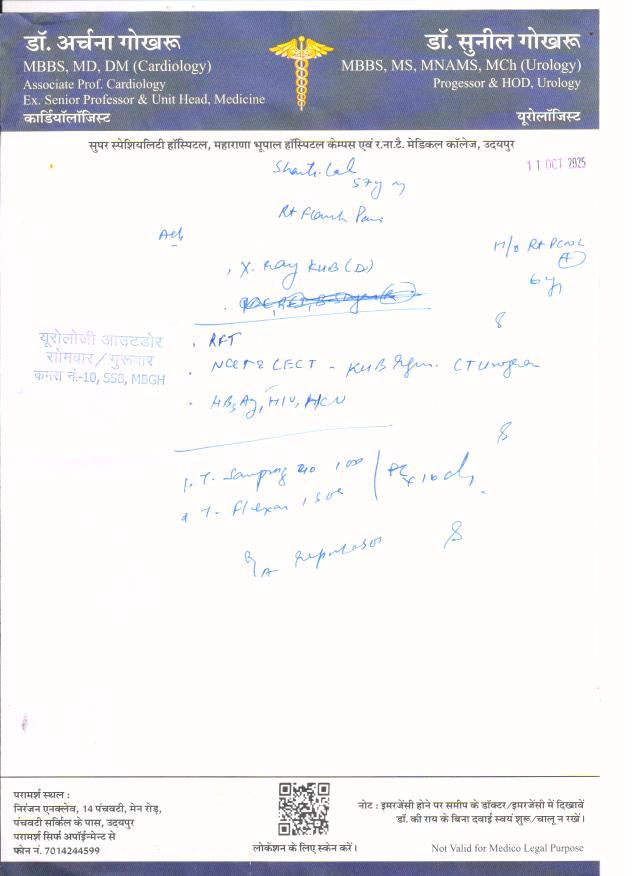 डॉ. अर्चना गोखरू
MBBS, MD, DM (Cardiology)
Associate Prof. Cardiology
Ex. Senior Professor & Unit Head, Medicine
कार्डियॉलॉजिस्ट
डॉ. सुनील गोखरू
MBBS, MS, MNAMS, MCh (Urology)
Progessor & HOD, Urology
यूरोलॉजिस्ट
सुपर स्पेशियलिटी हॉस्पिटल, महाराणा भूपाल हॉस्पिटल केम्पस एवं र.ना.टै. मेडिकल कॉलेज, उदयपुर
11 OCT 2025
Shanti Lal
57y m
Rt Flank Pain
Adv
H/o Rt PCNL
6 y
X. Ray KUB (D)
यूरोलोजी आउटडोर
सोमवार/गुरूवार
कमरा नं.-10, SSB, MBGH
RFT
NCCT & CECT - KUB CT Urogram
HBsAg, HIV, HCV
1. T.
T.
x 10 d
परामर्श स्थल :
निरंजन एनक्लेव, 14 पंचवटी, मेन रोड़,
पंचवटी सर्किल के पास, उदयपुर
परामर्श सिर्फ अपॉईन्मेन्ट से
फोन नं. 7014244599
लोकेशन के लिए स्केन करें।
नोट : इमरजेंसी होने पर समीप के डॉक्टर/इमरजेंसी में दिखावें
डॉ. की राय के बिना दवाई स्वयं शुरू/चालू न रखें।
Not Valid for Medico Legal Purpose